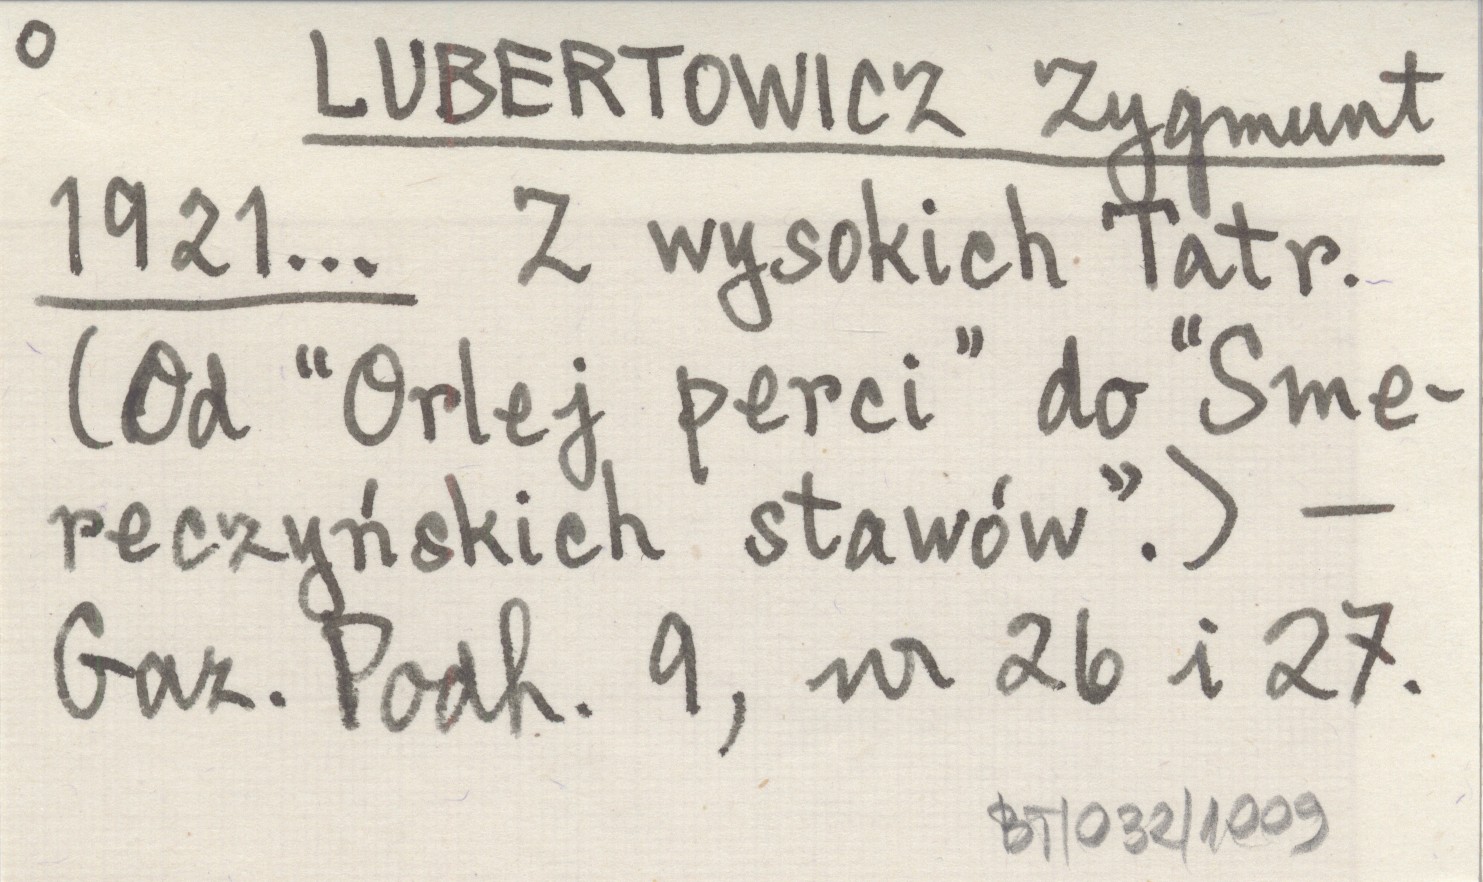 o
LUBERTOWICZ Zygmunt
1921... Z wysokich Tatr.
(Od "Orlej perci" do "Sme-
reczyńskich stawów".) —
Gaz. Podh. 9, nr 26 i 27.
BT/032/1009